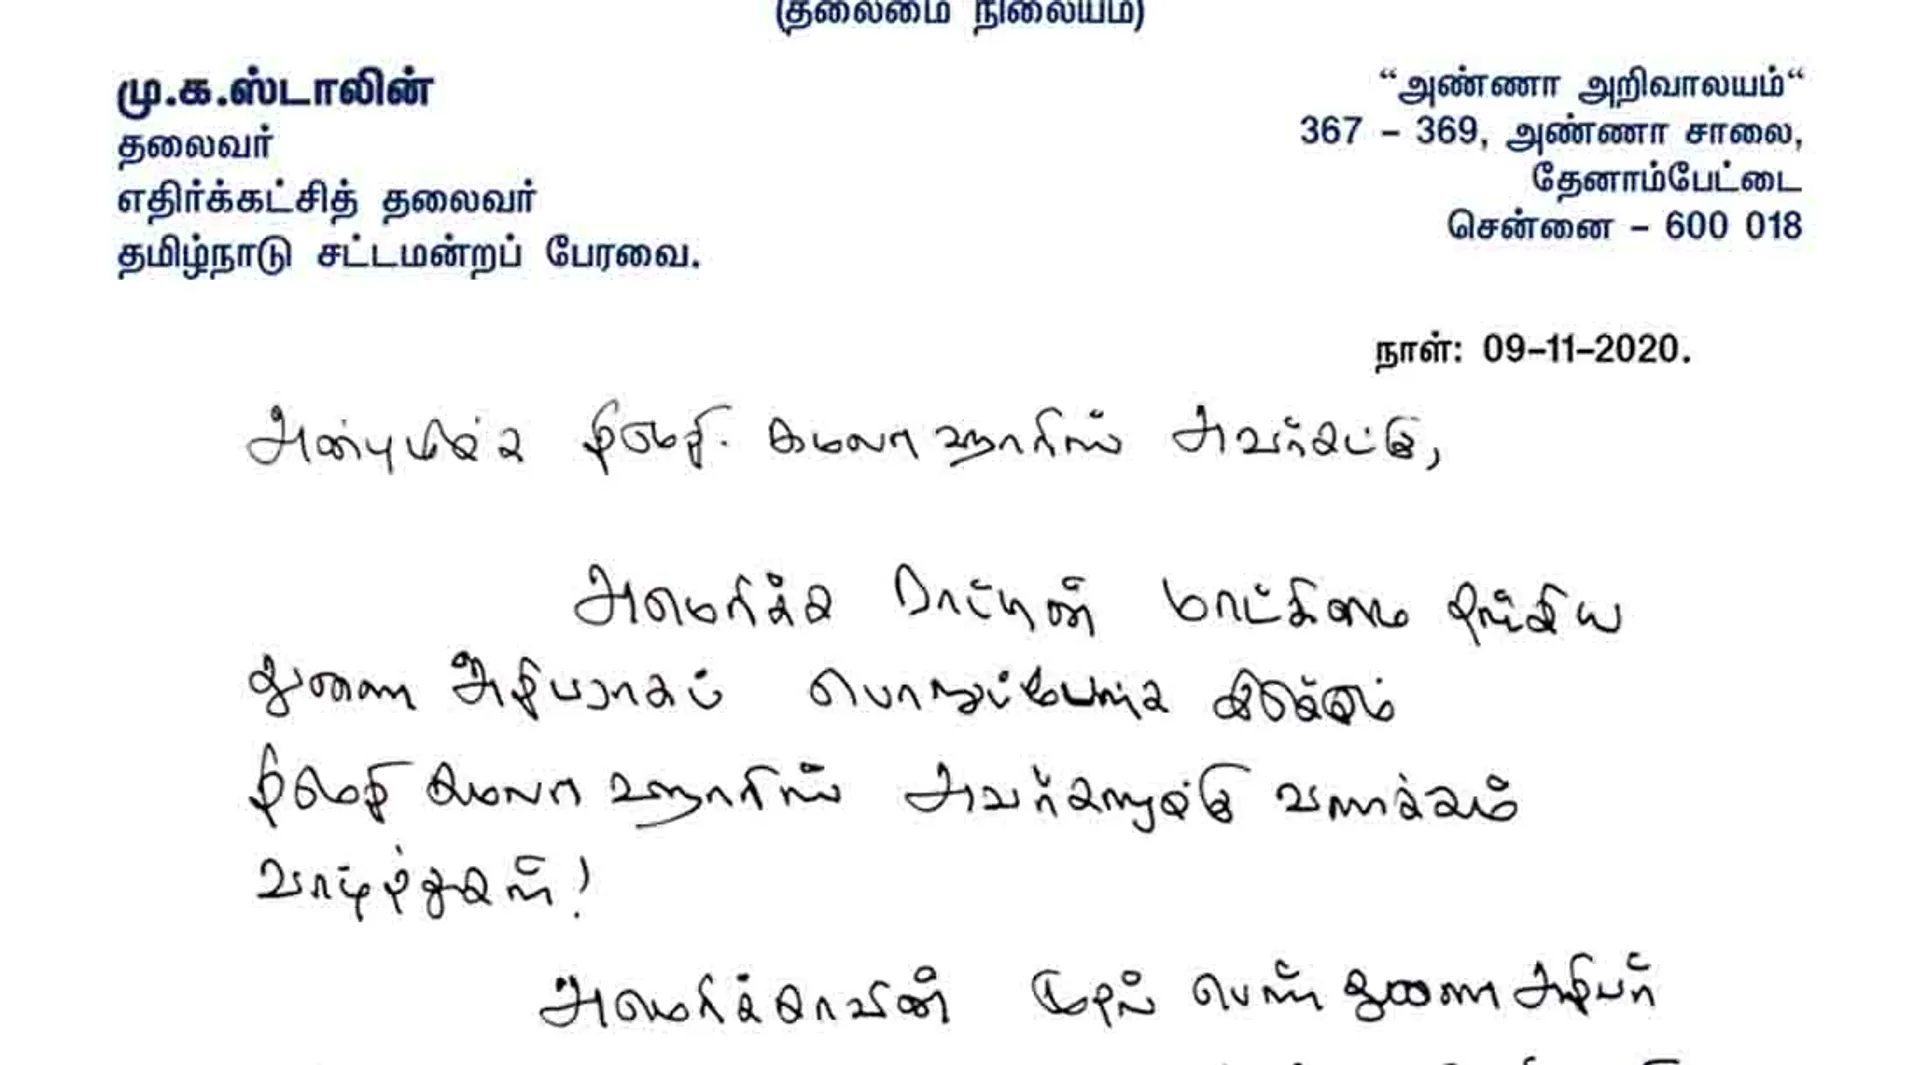 (தலைமை நிலையம்)
மு.க.ஸ்டாலின்
தலைவர்
எதிர்க்கட்சித் தலைவர்
தமிழ்நாடு சட்டமன்றப் பேரவை.
“அண்ணா அறிவாலயம்“
367 – 369, அண்ணா சாலை,
தேனாம்பேட்டை
சென்னை – 600 018
நாள்: 09-11-2020.
அன்புமிக்க திருமதி. கமலா ஹாரிஸ் அவர்கட்கு,
அமெரிக்க நாட்டின் மாட்சிமை தங்கிய
துணை அதிபராகப் பொறுப்பேற்க இருக்கும்
திருமதி கமலா ஹாரிஸ் அவர்களுக்கு வணக்கம்
வாழ்த்துகள்!
அமெரிக்காவின் முதல் பெண் துணை அதிபர்